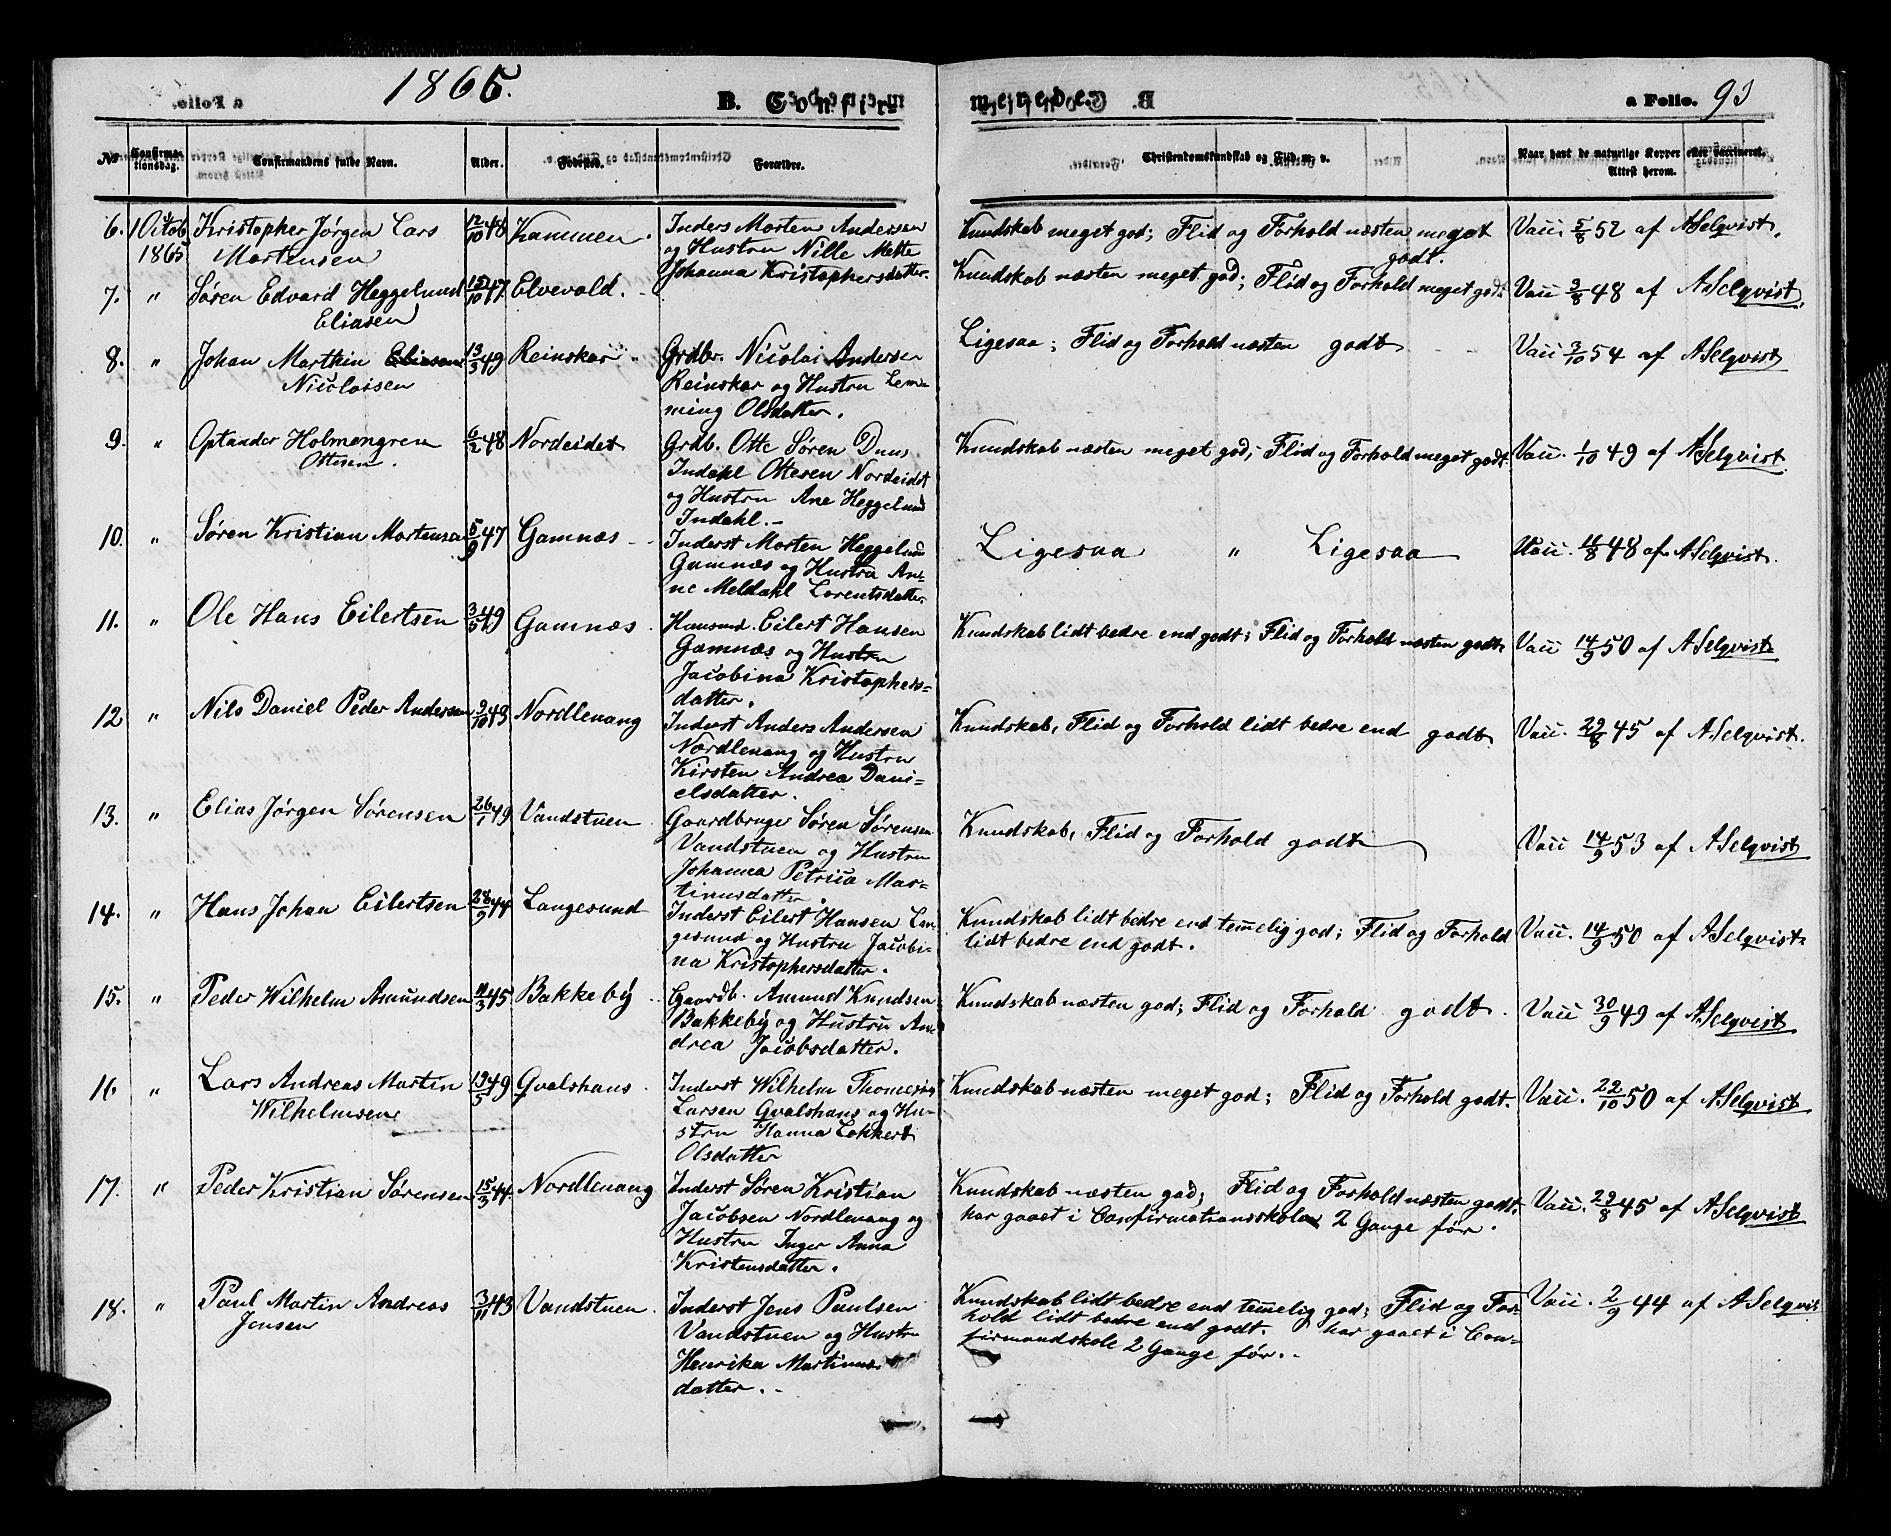 1865.
B. Confirmerede.
a Folio. 93
No
Confirmationsdag.
Confirmandens fulde Navn.
Alder.
Fødested.
Forældre.
Christendomskundskab og Flid m. v.
Naar havt de naturlige Kopper eller vaccineret. Attest herom.
6. 1 Octob 1865
Kristopher Jørgen Lars
Mortensen
12/10 48
Kammen.
Inders Morten Andersen
og Hustru Nille Mette
Johanna Kristophersdatter.
Kundskab meget god; Flid og Forhold næsten meget
godt.
Vacc. 5/8 52 af ASelqvist.
7. "
Søren Edvard Heggelund
Eliasen
15/10 47
Elvevold.
Kundskab næsten meget god; Flid og Forhold meget godt
Vacc 3/8 48 af ASelqvist.
8. "
Johan Marthin Eliasen
Nicolaisen
13/3 49
Reinskar "
Grdbr. Nicolai Andersen
Reinskar og Hustru Lem-
ming Olsdatter.
Ligesaa; Flid og Forhold næsten godt
Vacc 3/10 54 af ASelqvist
9. "
Optander Holmengren
Ottesen.
6/2 48
Nordeidet
Grdb. Otte Søren Duus
Indahl Ottesen Nordeidet
og Hustru Ane Heggelund
Indahl.
Kundskab næsten meget god; Flid og Forhold meget godt.
Vacc. 1/10 49 af ASelqvist
10. "
Søren Kristian Mortensen
5/9 47
Gamnæs
Inderst Morten Heggelund
Gamnæs og Hustru An-
ne Meldahl Lorentsdatter.
Ligesaa " Ligesaa
Vacc. 11/8 48 af ASelqvist.
11. "
Ole Hans Eilertsen
3/5 49
Gamnæs
Husmd. Eilert Hansen
Gamnæs og Hustru
Jacobina Kristophers-
datter.
Kundskab lidt bedre end godt; Flid og Forhold næsten godt
Vacc 14/9 50 af ASelqvist
12 "
Nils Daniel Peder Andersen
9/10 43
Nordlenang
Inderst Anders Andersen
Nordlenang og Hustru
Kirsten Andrea Dani-
elsdatter.
Kundskab, Flid og Forhold lidt bedre end godt
Vacc. 29/8 45 af ASelqvist.
13. "
Elias Jørgen Sørensen
26/1 49
Vandstuen
Gaardbruger Søren Sørensen
Vandstuen og Hustru
Johanna Petrica Mar-
tinusdatter.
Kundskab, Flid og Forhold godt
Vacc 14/9 53 af ASelqvist
14. "
Hans Johan Eilertsen
28/9 44
Langesund
Inderst Eilert Hansen Lan-
gesund og Hustru Jacobi-
na Kristophersdatter.
Kundskab lidt bedre end temmelig god; Flid og Forhold
lidt bedre end godt.
Vacc. 14/9 50 af ASelqvist
15. "
Peder Wilhelm Amundsen
11/3 45
Bakkeby
Gaardb. Amund Knudsen
Bakkeby og Hustru An-
drea Jacobsdatter.
Kundskab næsten god; Flid og Forhold godt.
Vacc 30/9 49 af ASelqvist
16 "
Lars Andreas Martin
Wilhelmsen
19/5 49
Qvalshaus
Inderst Wilhelm Thomesius
Larsen Qvalshaus og Hu-
stru Hanna Lokkert
Olsdatter
Kundskab næsten meget god; Flid og Forhold godt.
Vacc. 22/10 50 af ASelqvist
17. "
Peder Kristian Sørensen
15/3 44
Nordlenang
Inderst Søren Kristian
Jacobsen Nordlenang og
Hustru Inger Anna
Kristensdatter.
Kundskab næsten god; Flid og Forhold næsten godt.
har gaaet i Confirmationsskole 2 Gange før.
Vacc. 29/8 45 af ASelqvist
18. "
Paul Martin Andreas
Jensen
3/11 43
Vandstuen.
Inderst Jens Paulsen
Vandstuen og Hustru
Henrika Martinus-
datter.
Kundskab lidt bedre end temmelig god; Flid og For-
hold lidt bedre end godt. har gaaet i Con-
firmandskole 2 Gange før.
Vacc. 2/9 44 af ASelqvist